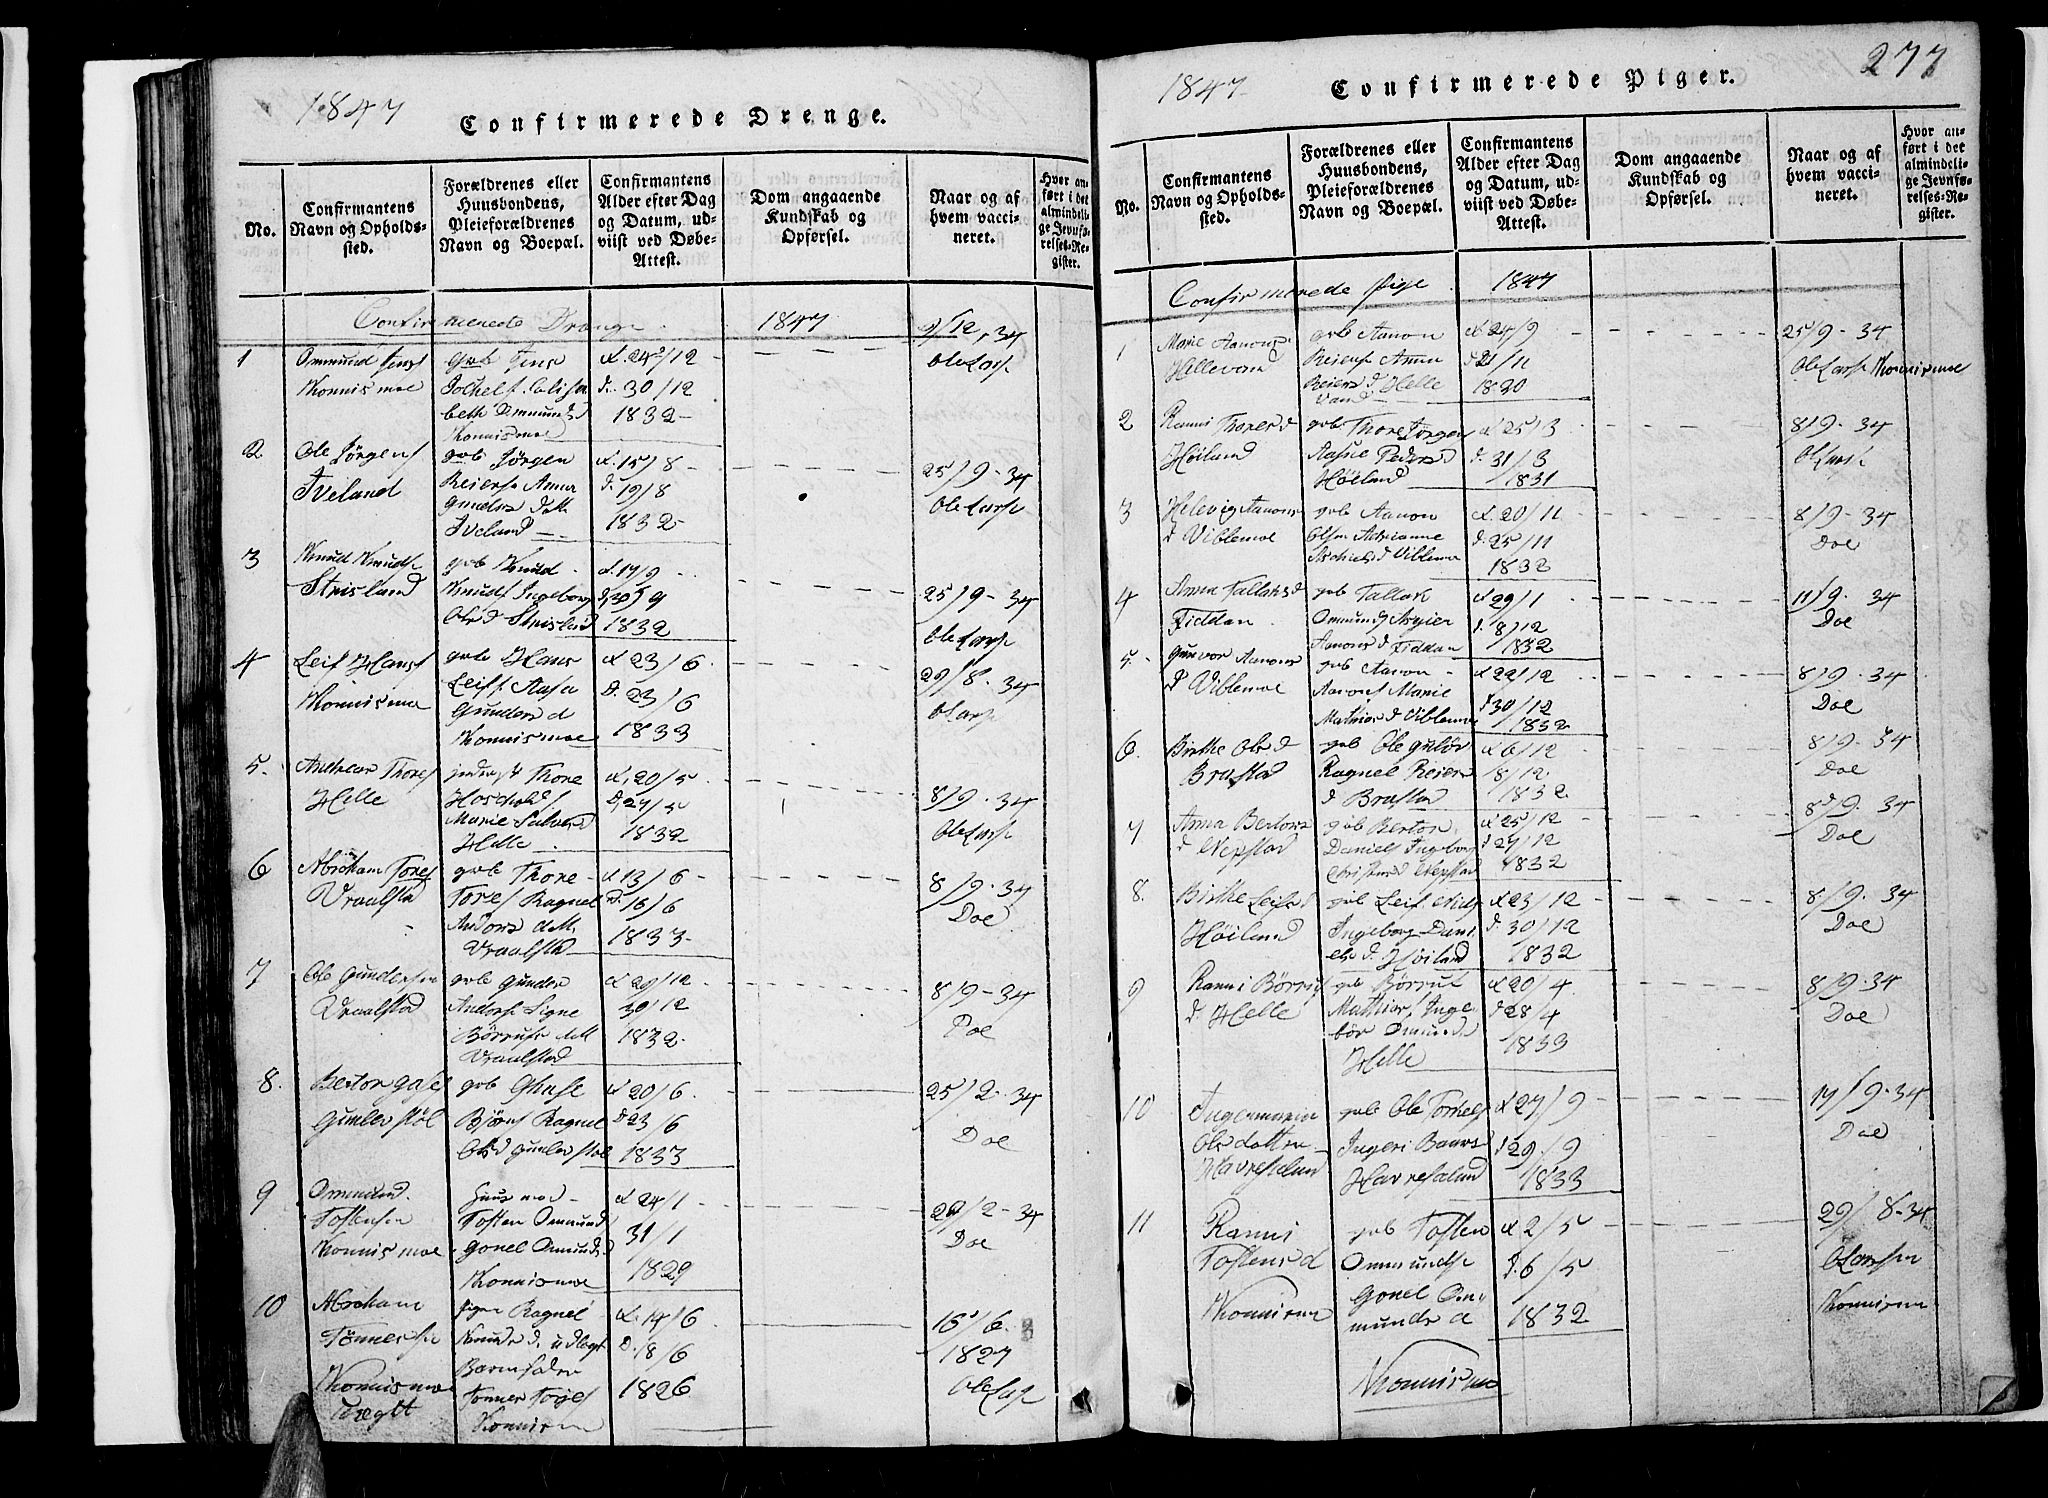 1847
Confirmerede Drenge.
No.
Confirmantens Navn og Opholds-sted.
Forældrenes eller Huusbondens, Pleieforældrenes Navn og Boepæl.
Confirmantens Alder efter Dag og Datum, ud-viist ved Døbe-Attest.
Dom angaaende Kundskab og Opførsel.
Naar og af hvem vacci-neret.
Hvor an-ført i det almindeli-ge Jevnfø-relses-Re-gister.
Confirmerede Drenge 1847
1
Ommund Jens
Konnismoe
gvb Jens
beth Ommunds d
Konnismoe
24/12
d. 30/12
1832
/12, 34
Ole Lars
2
Ole Jørgens
Iveland
gvb Jørgen
Reiers Anna
Iveland
15/8
d. 19/8
1832
25/9-34
Ole Lars
3
Knud Knuds
Strisland
gvb Knud
Knuds Ingeborg
Ols d Strisland
17/9
30/9
1832
25/9-34
Ole Lars
4
Leif Hans
Konnismoe
gvb Hans
Leifs Aasa
Gunders d
Konnismoe
23/6
d. 23/6
1833
29/8. 34
O Lars
5
Andreas Thores
Helle
Thore
Marie Salves d
Helle
20/5
d, 27/5
1832
8/9. 34
Ole Lars
6
Abraham Tores
Vraalstad
gvb Thore
Tores Ragnel
Vraalstad
13/6
d. 16/6
1833
8/9. 34
Doe
7
Ole Gundersen
Vraalstad
gvb Gunder
Andors Signe
Vraalstad
29/12
30/12
1832
8/9-34
Doe
8
Berton
Gumlerstöl
gvb
Bjørns Ragnel
Ols d Gumlerstöl
20/6
d 23/6
1833
25/2-34
Doe
9
Ommund
Tostensen
Konnismoe
Tosten Ommund
Gonel Ommunds
Konnismoe
24/1
31/1
1829
29/2-34
Doe
10
Abraham
Tønnesen
Konnismoe
Pigen Ragnel
Knuds d. udlagt
Barnefader
Konnism
14/6
d. 18/6
1826
16/6
1827
Ole Lars
1847
Confirmerede Piger.
277
No.
Confirmantens Navn og Opholds-sted.
Forældrenes eller Huusbondens, Pleieforældrenes Navn og Boepæl.
Confirmantens Alder efter Dag og Datum, ud-viist ved Døbe-Attest.
Dom angaaende Kundskab og Opførsel.
Naar og af hvem vacci-neret.
Hvor an-ført i det almindeli-ge Jevnfø-relses-Re-gister.
Confirmerede Pige 1847
1
Marie Aanons
Hellevand
gvb Aanon
Reiers Anna
Reiers d Helle
vand
24/9
d 21/11
25/9-34
Ole Lars Konnismoe
2
Ranni Thores d
Høiland
gvb Thore Jørgens
Aasne Peders d
Høiland
25/3
d. 31/3
1831
8/9-34
O Lars
3
Helevig Aanons
d Viblemoe
gvb Aanon
Olsen Adrianne
d Viblemoe
20/11
d. 25/11
1832
8/9-34
Doe
4
Anna Tallaks d
Fiddan
gvb Tallak
Ommunds Asgier
Aanons d Fiddan
29/1
d. 8/12
1832
11/9. 34
Doe
5
Gunvor Aanons
d Viblemoe
gvb Aanon
Aanons Marie
Mathias d Viblemoe
22/12
d 30/12
1832
8/9. 34
Doe
6
Birthe Ols d
Brastad
gvb Ole
Ragnel Reiers
d Brastad
6/12
8/12
1832
8/9. 34
Doe
7
Anna Bertons
d Nepstad
gvb Berton
Daniels Ingeborg
Christens d Nepstad
25/12
d 27/12
1832
8/9. 34
Doe
8
Birthe Leifs d
Høiland
gvb Leif Niels
Ingeborg Dani
els d Høiland
23/12
d. 30/12
1832
8/9. 34
Doe
9
Ranni Børrufs
d Helle
gvb Børruf
Mathias, Inge
bor Ommunds d
Helle
20/4
d 28/4
1833
8/9. 34
Doe
10
Ingermarie
Olsdatter
Havresland
gvb Ole Torkels
Ingeri Baars d
Havresaland
27/9
d 29/9
1833
17/9. 34
Doe
11
Ranni
Tostens d
Konnism
gvb Tosten
Ommunds
Gonel Om
munds d
Konnismoe
2/5
d. 6/5
1832
29/8-34
O Larsen
Konnism